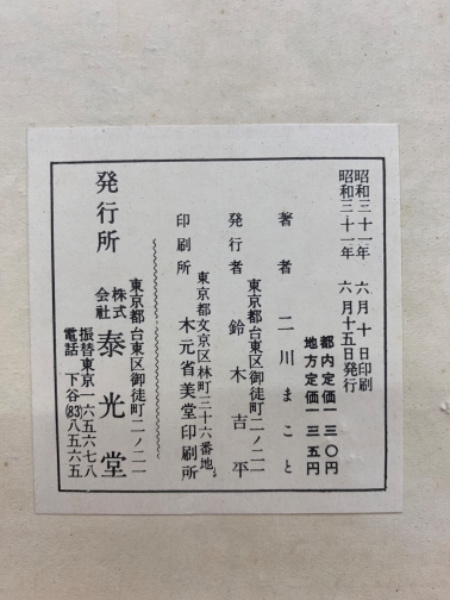 昭和三十一年 六月十日印刷
昭和三十一年 六月十五日発行
都内定価一三〇円
地方定価一三五円
著者 二川まこと
東京都台東区御徒町二ノ二一
発行者 鈴木吉平
東京都文京区林町三十六番地
印刷所 木元省美堂印刷所
発行所
東京都台東区御徒町二ノ二一
株式会社 泰光堂
振替東京一六五六七八
電話 下谷(83)八五六五